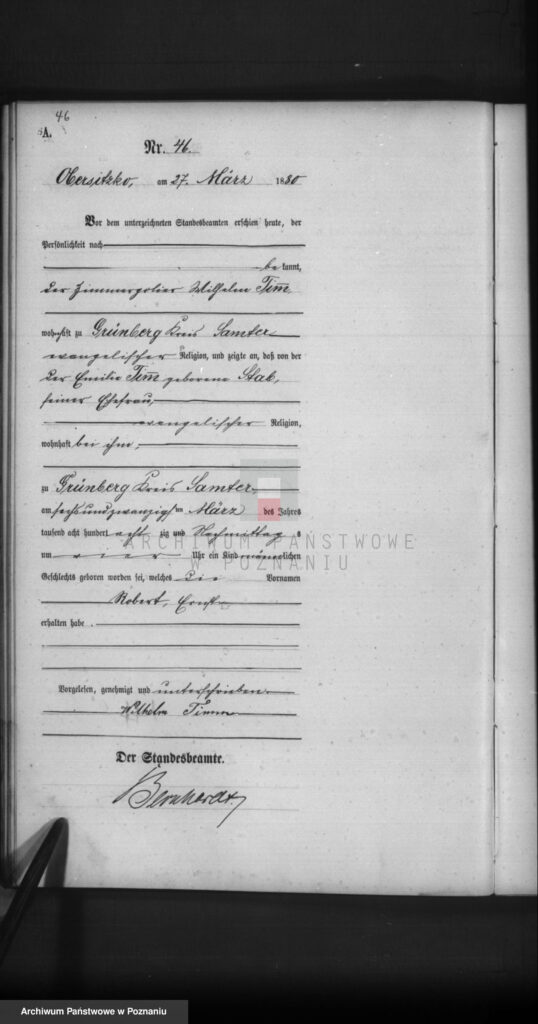 46
A.
Nr. 46.
Obersitzko, am 27. März 1880
Vor dem unterzeichneten Standesbeamten erschien heute, der
Persönlichkeit nach
be kannt,
der Zimmerpolier Wilhelm Tim̅
wohnhaft zu Grünberg Kreis Samter
evangelischer Religion, und zeigte an, daß von der
der Emilie Tim̅ geborene Stab,
seiner Ehefrau,
evangelischer Religion,
wohnhaft bei ihm,
zu Grünberg Kreis Samter,
am sechsundzwanzigsten März des Jahres
tausend acht hundert acht zig und Nachmittag s
um vier Uhr ein Kind männlichen
Geschlechts geboren worden sei, welches die Vornamen
Robert, Ernst
erhalten habe.
Vorgelesen, genehmigt und unterschrieben.
Wilhelm Timm
Der Standesbeamte.
Bernhardt
ARCHIWUM PAŃSTWOWE
W POZNANIU
Archiwum Państwowe w Poznaniu